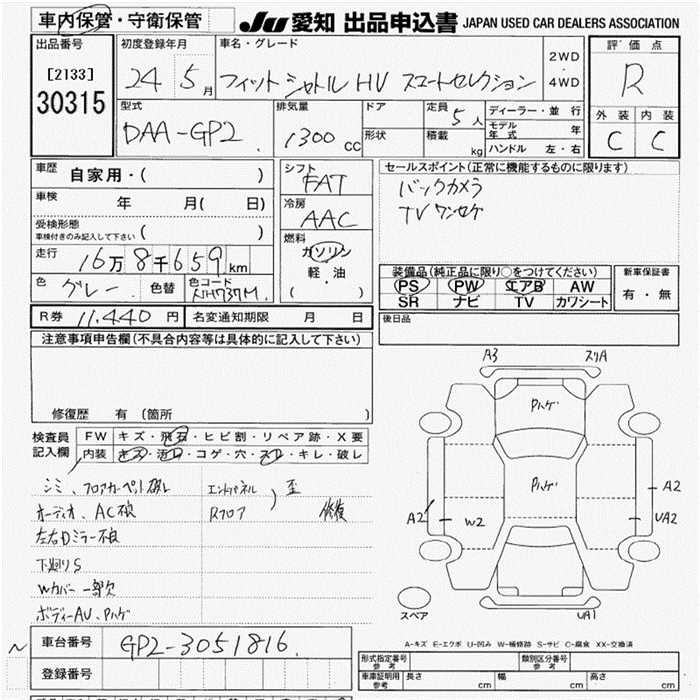 車内保管・守衛保管
JU 愛知 出品申込書 JAPAN USED CAR DEALERS ASSOCIATION
出品番号
[2133]
30315
初度登録年月
24 5月
車名・グレード
フィットシャトル HV スマートセレクション
2WD
・
4WD
評価点
R
外装 内装
C C
型式
DAA-GP2
排気量
1300 cc
ドア
形状
定員 5人
積載 kg
ディーラー・並行
モデル年式 年
ハンドル 左・右
車歴 自家用・( )
車検 年 月( 日)
受検形態
車検付きのみ記入して下さい ( )
走行 16万8千659km
色 グレー 色替 色コード NH737M
シフト
FAT
冷房
AAC
燃料
ガソリン
軽・油
( )
セールスポイント(正常に機能するものに限ります)
バックカメラ
TV ワンセグ
装備品(純正品に限り○をつけてください)
PS PW エアB AW
SR ナビ TV カワシート
新車保証書
有・無
R券 11,440円 名変通知期限 月 日
後日品
注意事項申告欄(不具合内容等は具体的に記入して下さい)
修復歴 有 (箇所 )
検査員
記入欄
FW キズ・飛石・ヒビ割・リペア跡・X要
内装 キズ・汚れ・コゲ・穴・スレ・キレ・破レ
シミ、フロアカーペット破レ
オーディオ、AC不良
左右Dミラー不良
下廻りS
Wカバー一部欠
ボディーAU、Pハゲ
エンドパネル
Rフロア
) 歪
修復
A3 スリA
Pハゲ
Pハゲ
A2
W2
A2
UA2
UA1
スペア
A-キズ E-エクボ U-凹み W-補修跡 S-サビ C-腐食 XX-交換済
車台番号 GP2-3051816
登録番号
形式指定番号 参考
類別区分番号 参考
車庫証明用 参考 長さ cm 幅 cm 高さ cm